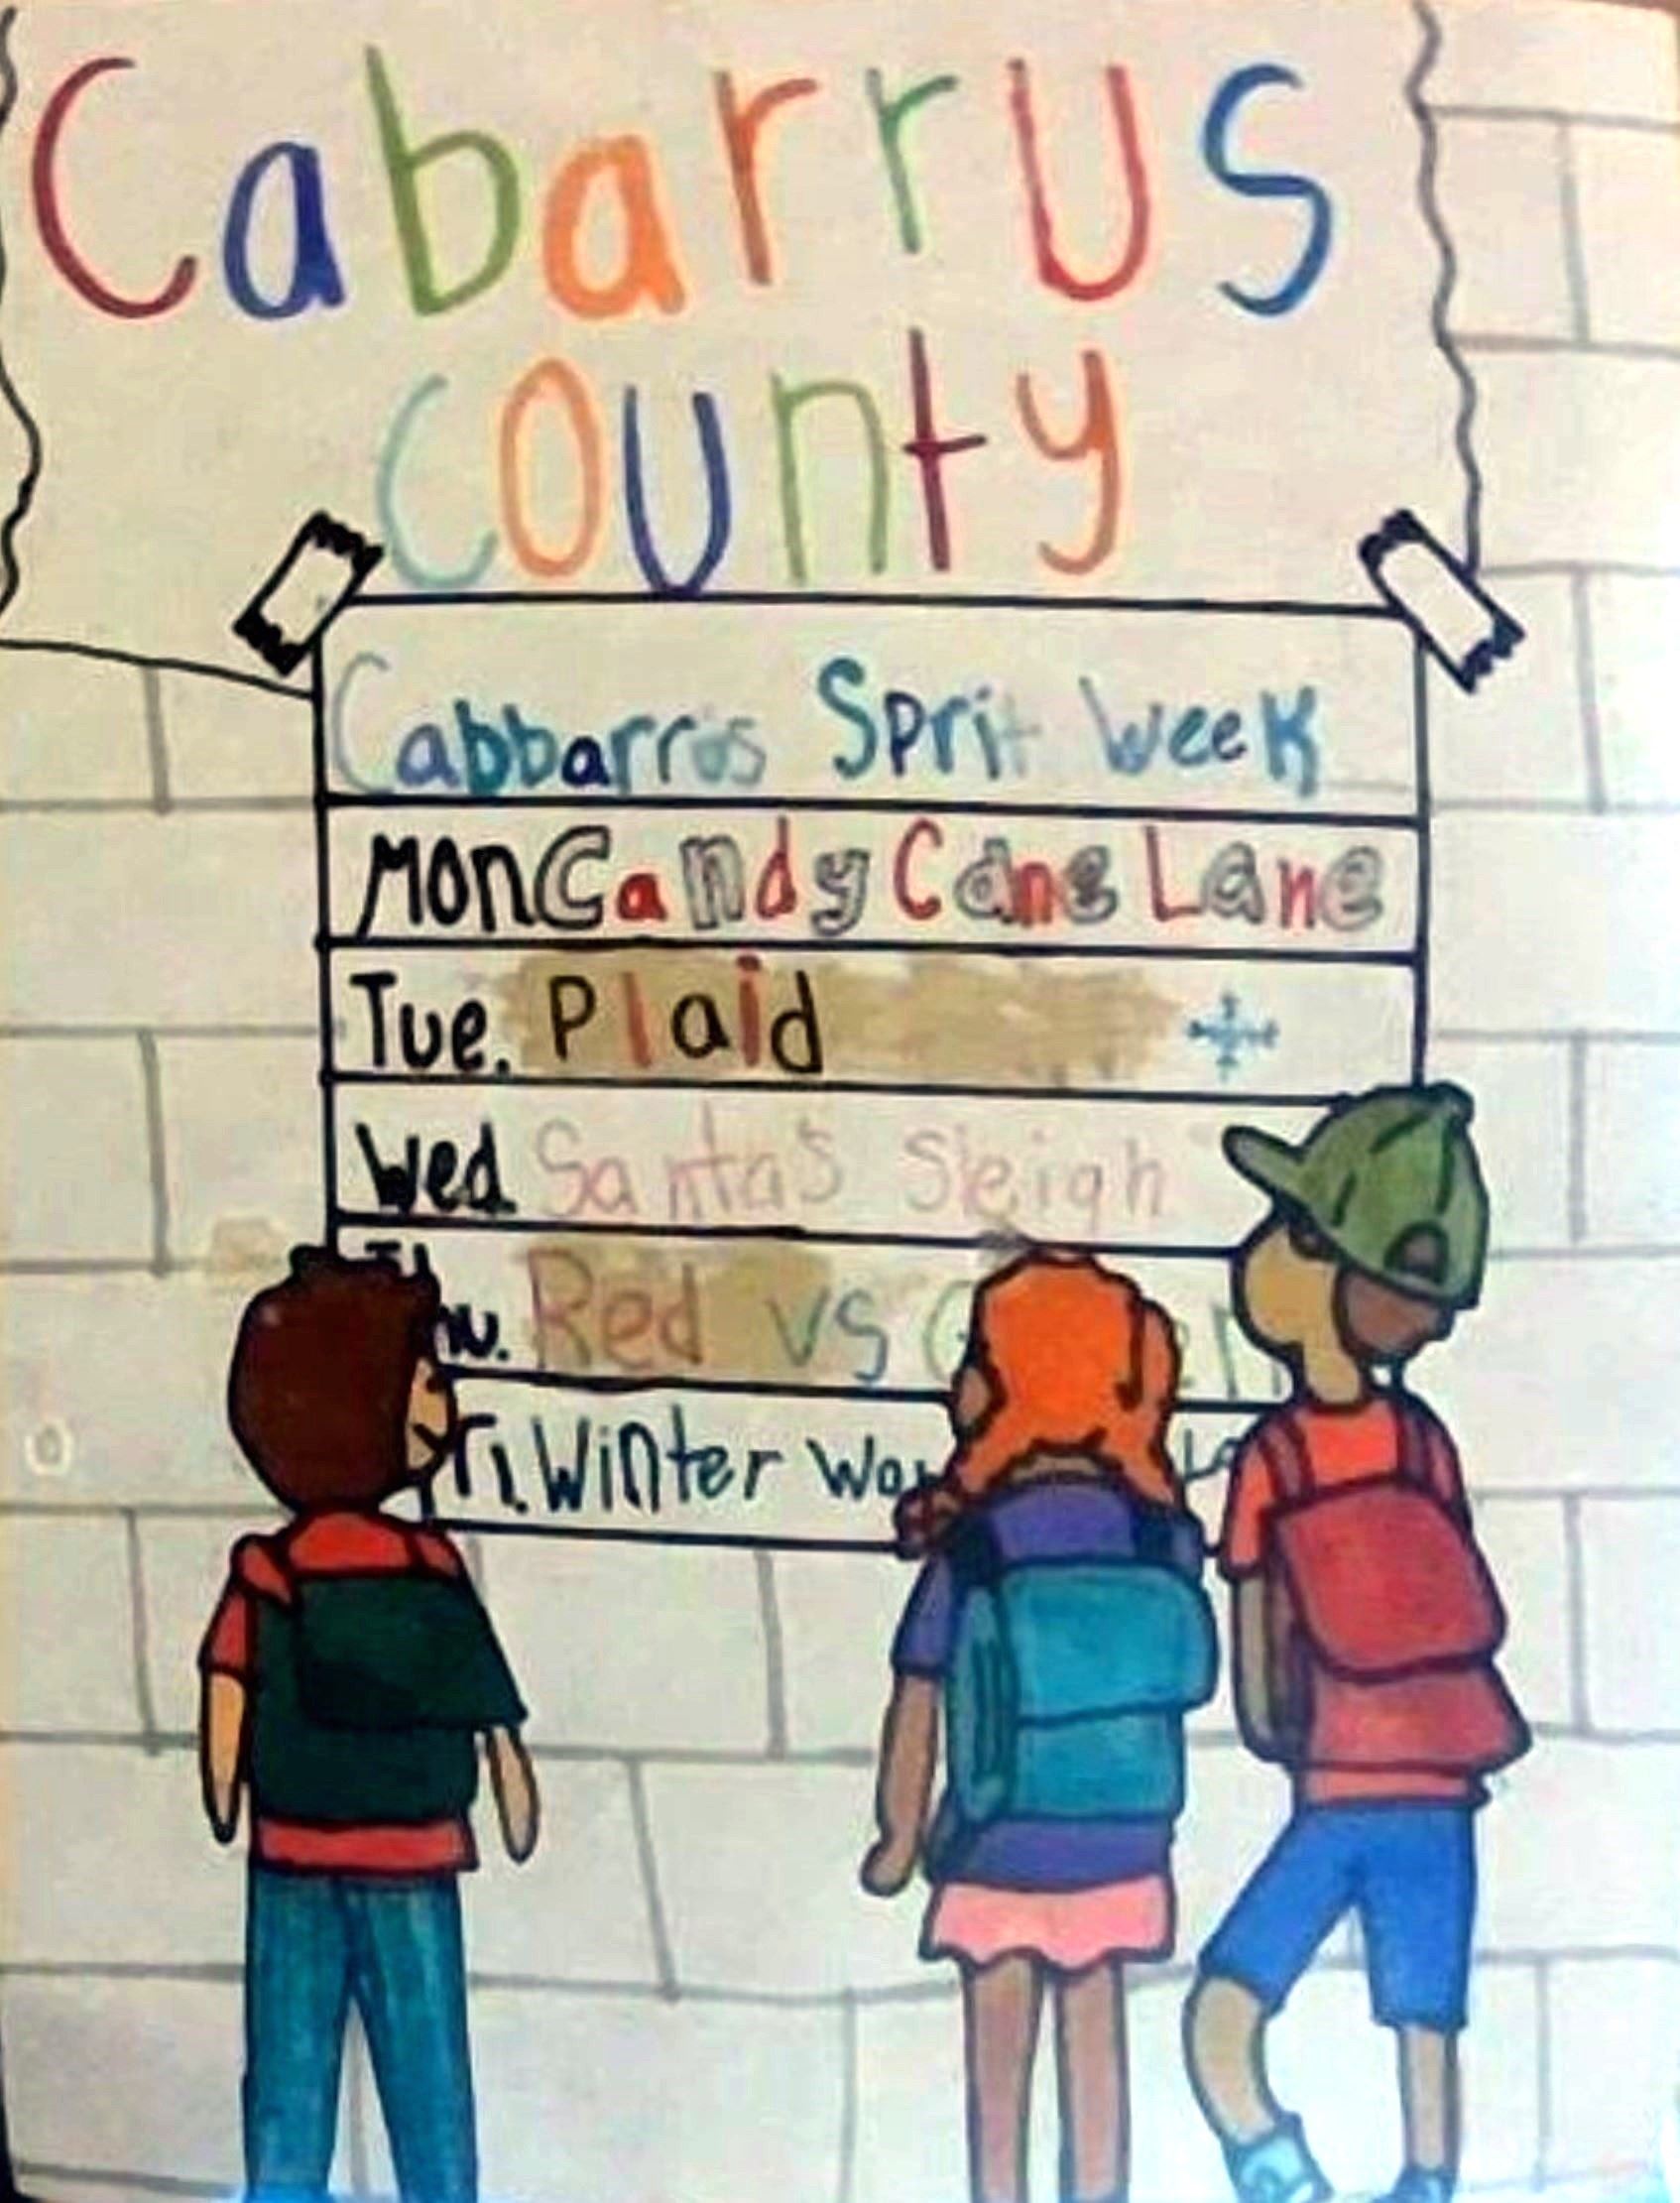 Cabarrus
county
Cabbarrus Sprit Week
Mon Candy Cane Lane
Tue. Plaid
Wed. Santa's Sleigh
Thu. Red vs
Winter